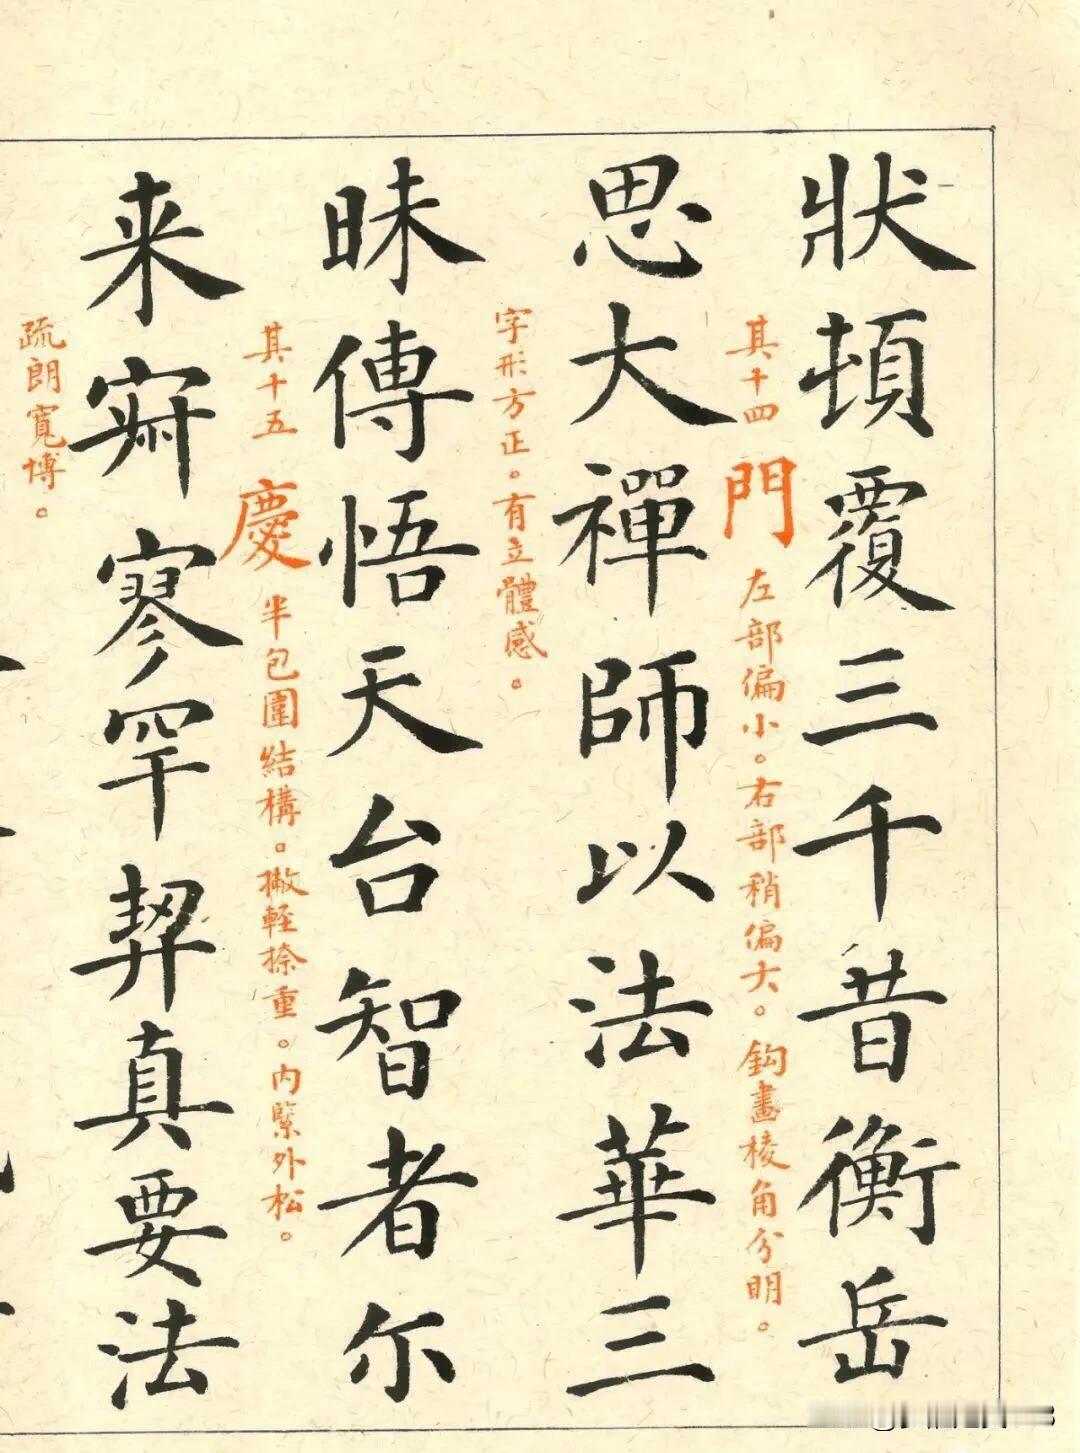 狀頓覆三千昔衡岳
其十四 門 左部偏小。右部稍偏大。鈎畫棱角分明。
思大禪師以法華三
字形方正。有立體感。
昧傳悟天台智者尔
其十五 慶 半包圍結構。撇輕捺重。内緊外松。
来寂寥罕契真要法
疏朗寬博。